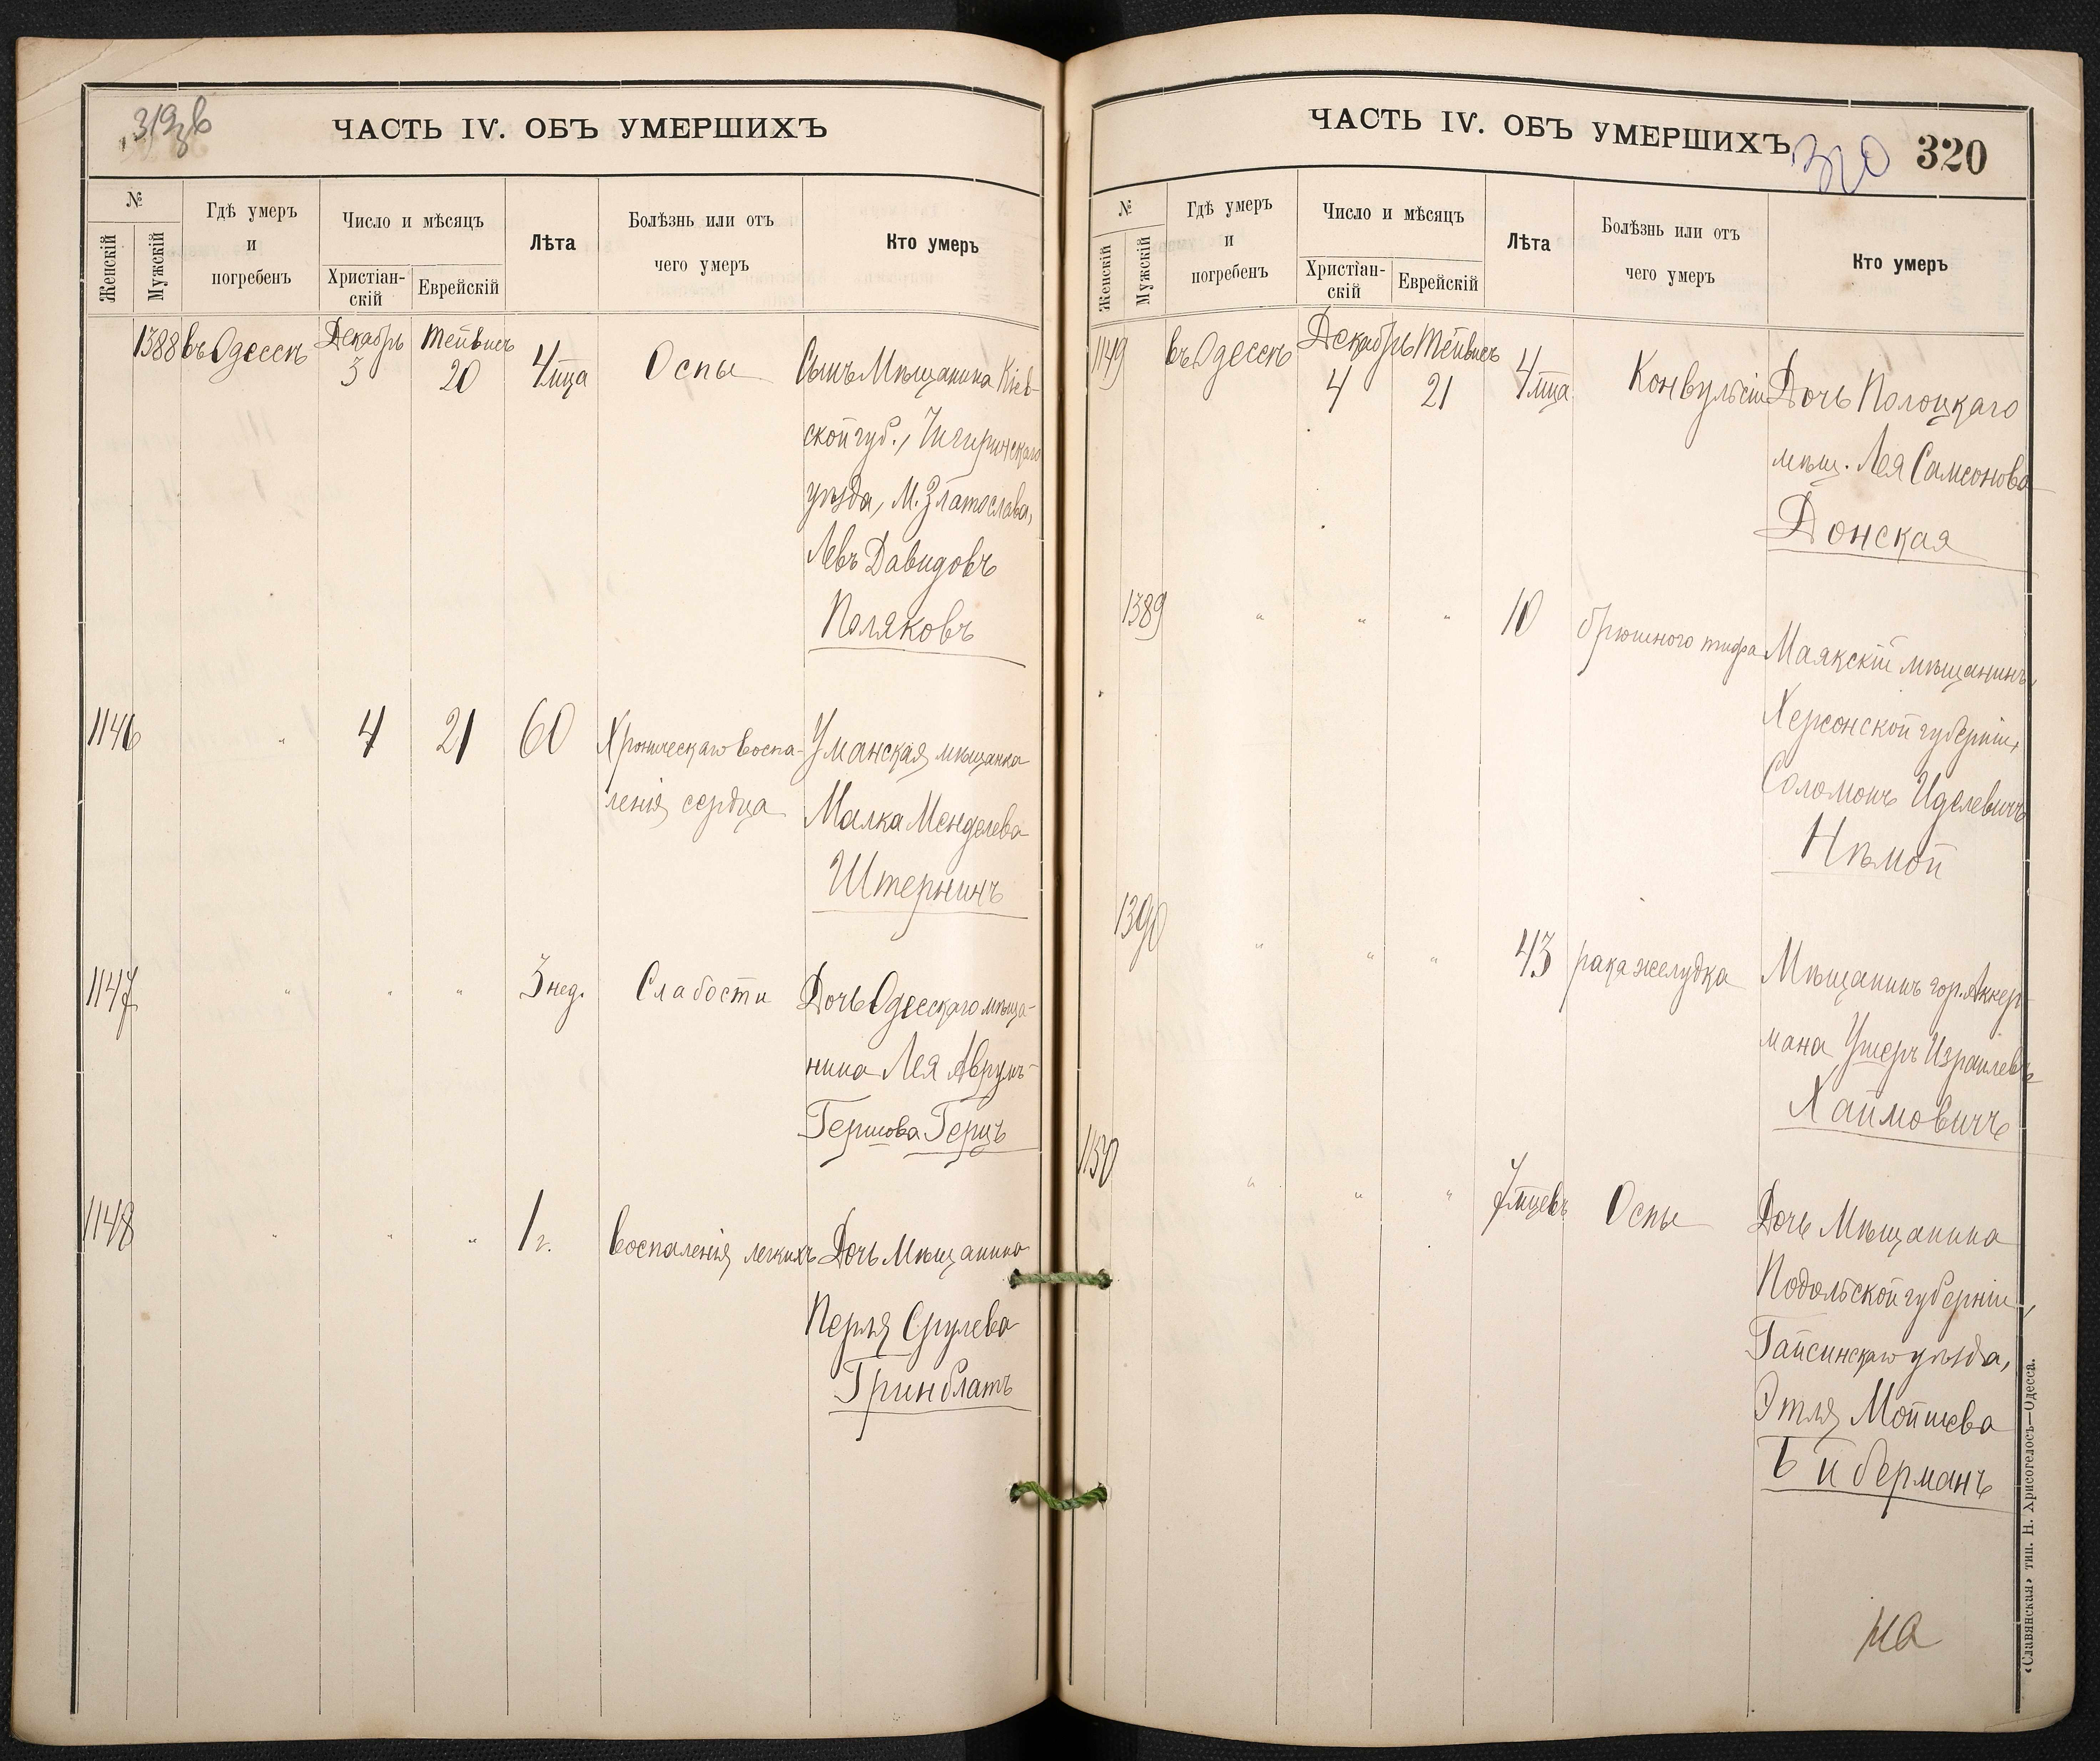 319 зв
ЧАСТЬ IV. ОБЪ УМЕРШИХЪ
№
Женскій
Мужскій
Гдѣ умеръ
и
погребенъ
Число и мѣсяцъ
Христіан-
скій
Еврейскій
Лѣта
Болѣзнь или отъ
чего умеръ
Кто умеръ
1388 въ Одессѣ Декабрь 3 Тейвисъ 20 4 мца Оспы Сынъ Мѣщанина Кіев-
ской губ., Чигиринскаго
уѣзда, М. Златослава,
Левъ Давидовъ
Поляковъ
1146 " 4 21 60 Хроническаго воспа- Уманская мѣщанка
ленія сердца Малка Менделева
Штернинъ
1147 " " " 3 нед. Слабости Дочь Одесскаго мѣща-
нина Лея Аврумъ-
Гершова Герцъ
1148 " " " 1 г. Воспаленія легкихъ Дочь Мѣщанина
Перля Срулева
Гринблатъ
ЧАСТЬ IV. ОБЪ УМЕРШИХЪ
320
320
№
Женскій
Мужскій
Гдѣ умеръ
и
погребенъ
Число и мѣсяцъ
Христіан-
скій
Еврейскій
Лѣта
Болѣзнь или отъ
чего умеръ
Кто умеръ
1149 въ Одессѣ Декабрь 4 Тейвисъ 21 4 мца Конвульсіи Дочь Полоцкаго
мѣщ. Лея Самсонова
Донская
1389 " " " 10 брюшного тифа Маякскій мѣщанинъ,
Херсонской губерніи,
Соломонъ Иделевичъ
Нѣмой
1390 " " " 43 рака желудка Мѣщанинъ гор. Аккер-
мана Ушеръ Израилевъ
Хаймовичъ
1150 " " " 7 мцевъ Оспы Дочь Мѣщанина
Подольской губерніи,
Гайсинскаго уѣзда,
Этля Мойшева
берманъ
на
«Славянская» тип. Н. Хрисогелосъ—Одесса.